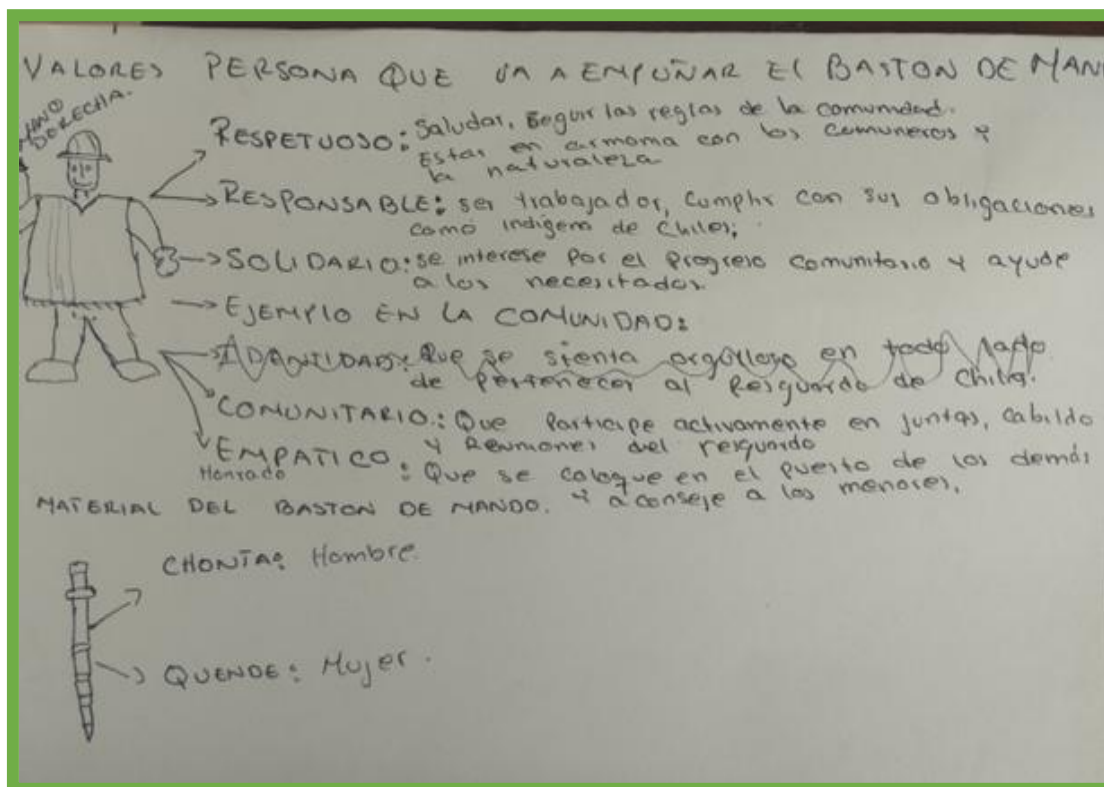 VALORES PERSONA QUE VA A EMPUÑAR El BASTON DE MAN
MANO
DERECHA.
RESPETUOSO: Saludar, seguir las reglas de la comunidad.
Estar en armoma con los comuneros y
la naturaleza
RESPONSABLE: ser trabajador, cumplir con sus obligaciones
como indigena de Chiles;
SOLIDARIO: se interese por el progreso comunitario y ayude
a los necesitados.
EJEMPlO EN LA COMUNIDAD:
IDANTIDAD: Que se sienta orgulloso en todo lado
de pertenecer al Resguardo de Chiles.
COMUNITARIO: Que Participe activamente en juntas, cabildo
y Reuniones del resguardo
EMPATICO: Que se coloque en el puesto de los demás
Honrado
y aconseje a los menores,
MATERIAL DEL BASTON DE MANDO.
CHONTA: Hombre.
QUENDE: Mujer.